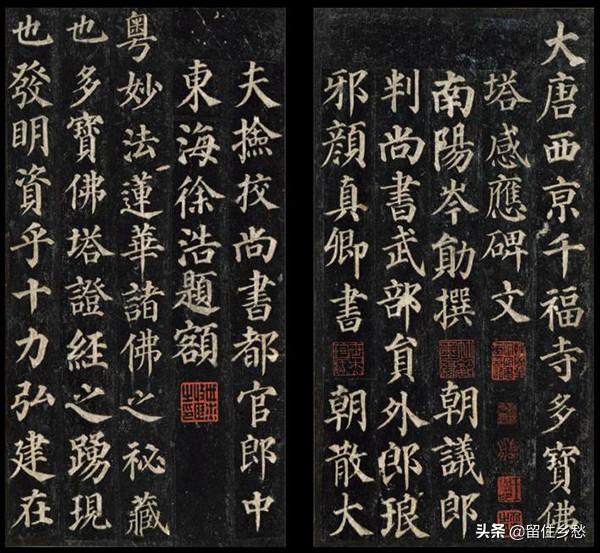 大唐西京千福寺多寶佛
塔感應碑文
南陽岑勛撰 朝議郎
判尚書武部員外郎琅
邪顏真卿書 朝散大
夫撿挍尚書都官郎中
東海徐浩題額
粤妙法蓮華諸佛之祕藏
也多寶佛塔證經之踴現
也發明資乎十力弘建在
头条 @留住乡愁